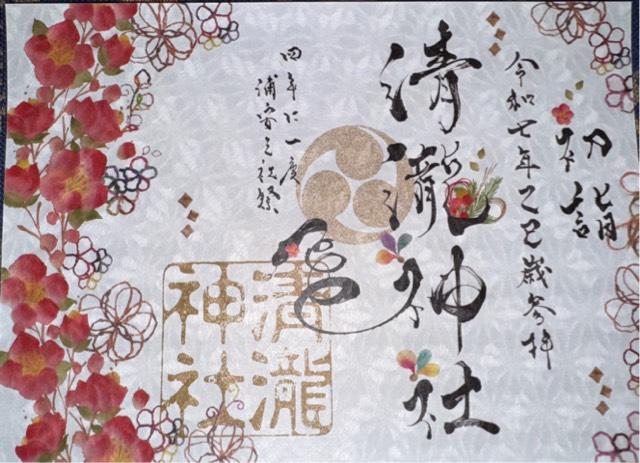 初詣
令和七年乙巳歳参拝
清瀧神社
四年に一度
浦安三社祭
清瀧
神社